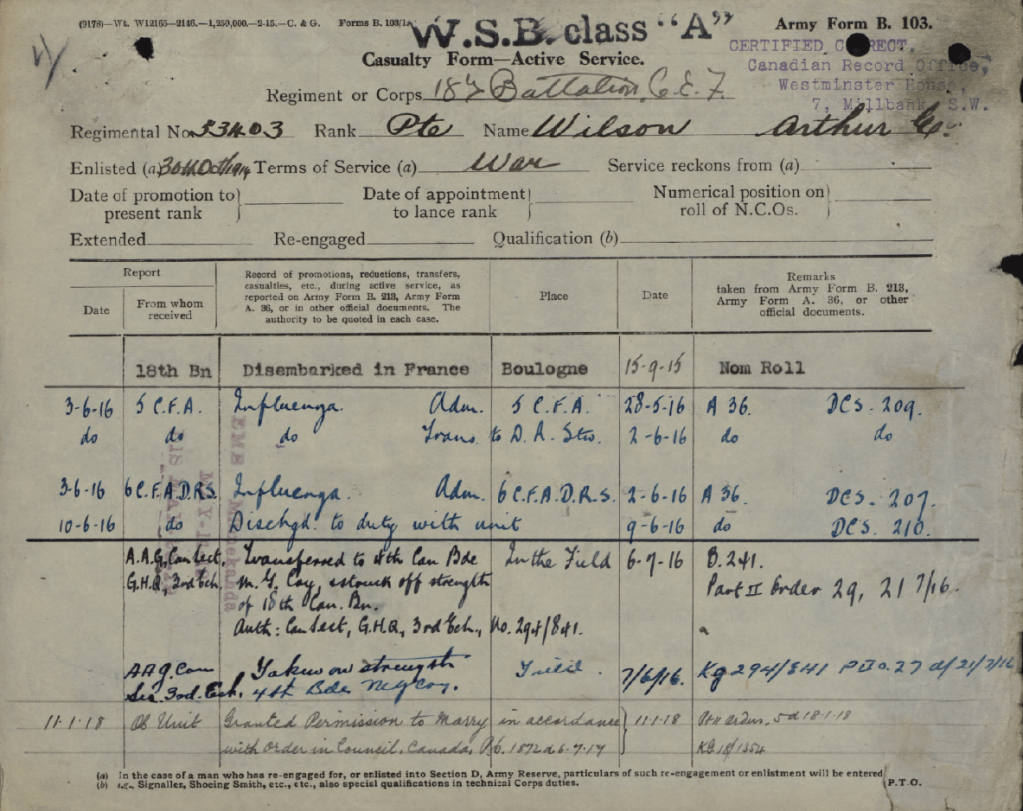 (9178)—Wt. W12165—2146.—1,250,000.—2-15.—C. & G. Forms B. 103/1.
W.S.B. class "A"
Army Form B. 103.
Casualty Form—Active Service.
CERTIFIED CORRECT.
Canadian Record Office,
Westminster House,
7, Millbank, S.W.
Regiment or Corps 18th Battalion, C.E.F.
Regimental No. 53403 Rank Pte Name Wilson Arthur
Enlisted (a) 30th Oct 1914 Terms of Service (a) War Service reckons from (a)
Date of promotion to present rank Date of appointment to lance rank Numerical position on roll of N.C.Os.
Extended Re-engaged Qualification (b)
Report
Date From whom received
Record of promotions, reductions, transfers, casualties, etc., during active service, as reported on Army Form B. 213, Army Form A. 36, or in other official documents. The authority to be quoted in each case.
Place
Date
Remarks taken from Army Form B. 213, Army Form A. 36, or other official documents.
18th Bn Disembarked in France Boulogne 15-9-15 Nom Roll
3-6-16 5 C.F.A. Influenza. Adm. 5 C.F.A. 28-5-16 A 36. DCS. 209.
do do do Trans. to D.R. Stn. 2-6-16 do do
3-6-16 6 C.F.A.D.R.S. Influenza. Adm. 6 C.F.A.D.R.S. 2-6-16 A 36. DCS. 207.
10-6-16 do Dischgd. to duty with unit 9-6-16 do DCS. 210.
A.A.G. Can Sect, Transferred to 4th Can Bde In the Field 6-7-16 B. 241.
G.H.Q, 3rd Ech. M. G. Coy, & struck off strength Part II Order 29, 21 7/16.
of 18th Can. Bn.
Auth: Can Sect, G.H.Q, 3rd Ech., No. 294/841.
AAG Can Taken on strength Field. 7/6/16. Kg 294/841 P II O. 27 d/21/7/16
Sec. 3rd Ech. 4th Bde M G Coy.
11-1-18 OC Unit Granted Permission to Marry in accordance 11-1-18 Pt II Orders, 5 d 18-1-18
with Order in Council, Canada, P.C. 1872 d 6-7-17 KG 18/1354
(a) In the case of a man who has re-engaged for, or enlisted into Section D, Army Reserve, particulars of such re-engagement or enlistment will be entered
(b) e.g., Signaller, Shoeing Smith, etc., etc., also special qualifications in technical Corps duties.
P.T.O.